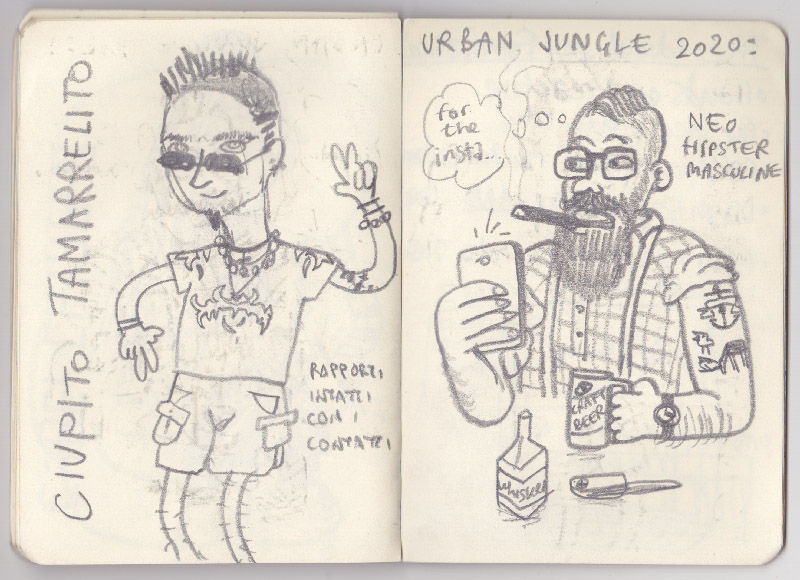 CIUPITO TAMARRELITO
RAPPORTI
INTATTI
CON I
CONTATTI
URBAN JUNGLE 2020:
for
the
insta...
NEO
HIPSTER
MASCULINE
CRAFT
BEER